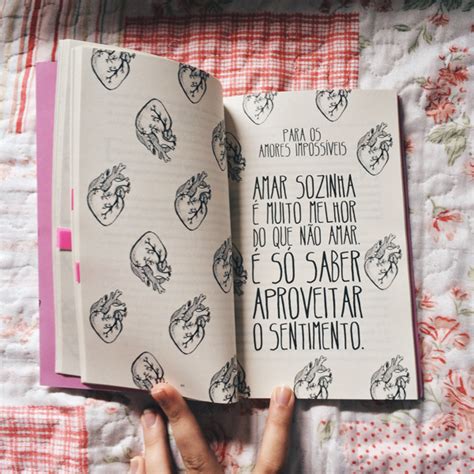 PARA OS
AMORES IMPOSSÍVEIS
AMAR SOZINHA
É MUITO MELHOR
DO QUE NÃO AMAR.
É SÓ SABER
APROVEITAR
O SENTIMENTO.